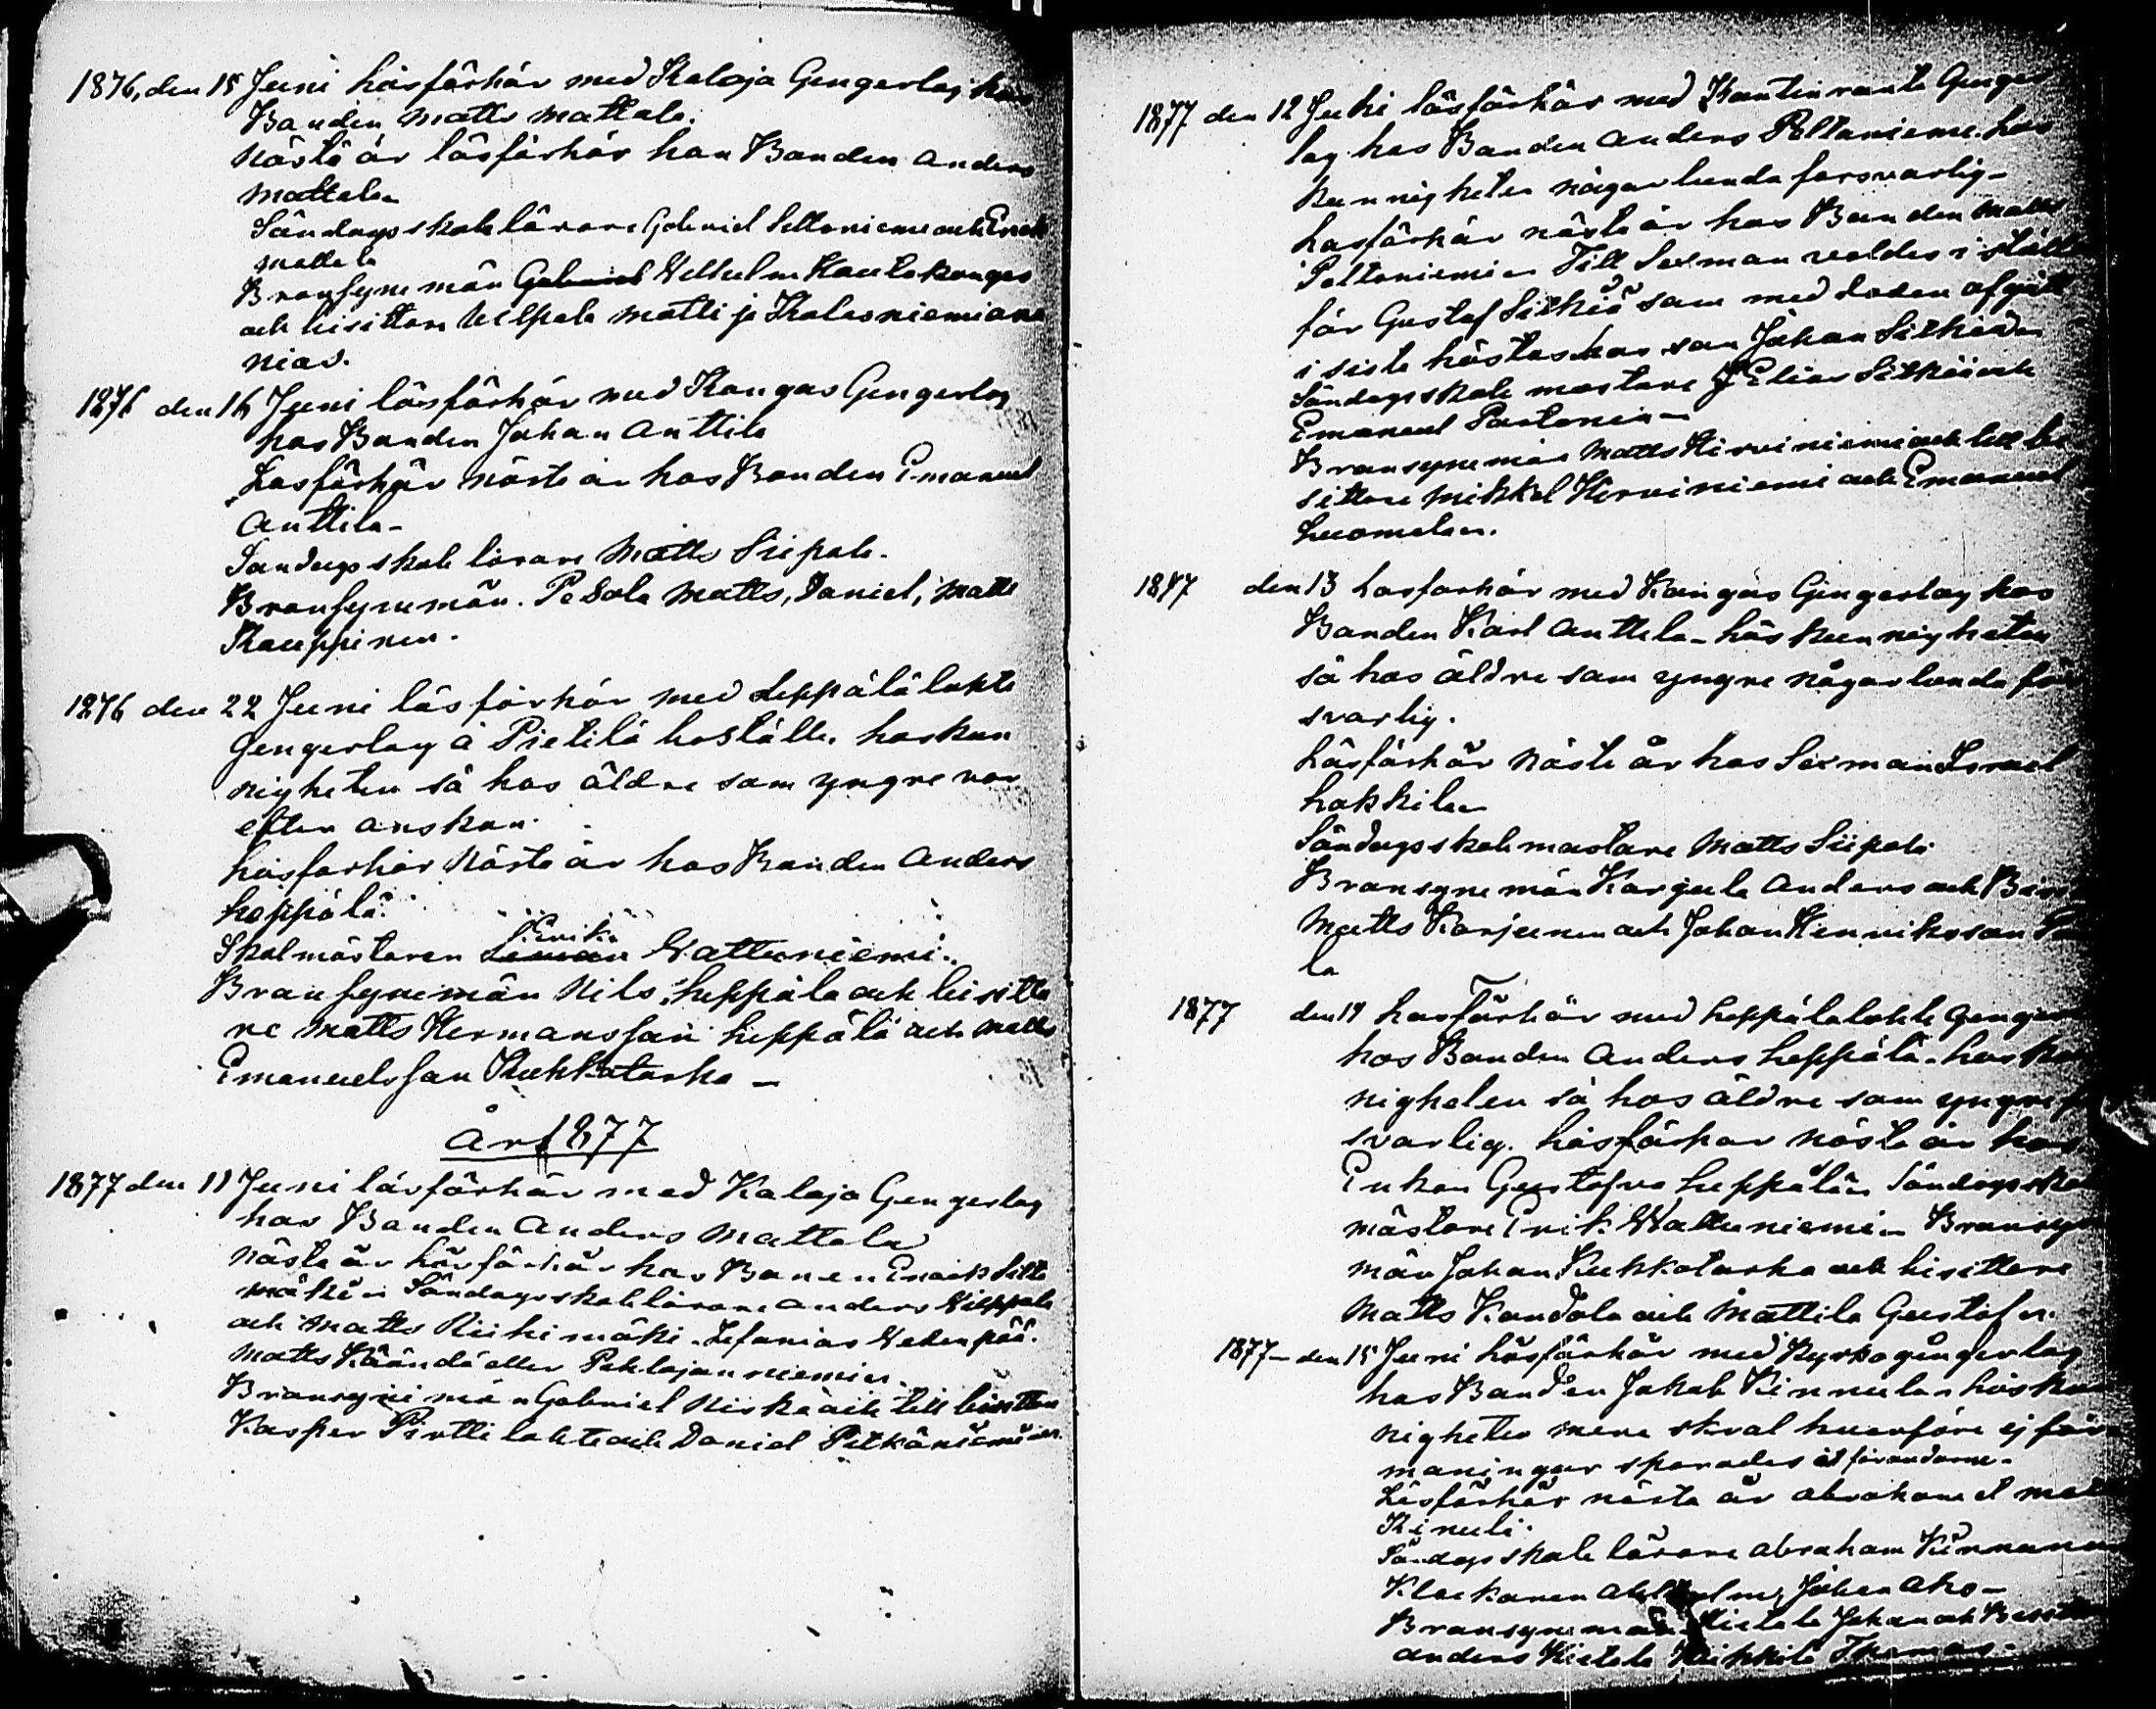 1876, den 15 Juni läsförhör med Kalaja Gengerlag hos
Banden Matts Mattala.
Nästa år läsförhör han Banden Anders
Mattala
Söndags skole lärare Gabriel Siltaniemi och Erick
Mattala
Bransyne män Gabriel Vilhelm Kautokangas
och bisittare Ulpala Matti ja Kalaoniemi ana
nias.
1876 den 16 Juni läsförhör med Kangas Gengerlag
hos Banden Johan Anttila
Läsförhör näste år hos Banden Emanuel
Anttila-
Sandags skole lärare Matts Siipola.
Bransynemän. Pesola Matts, Daniel, Matts
Kauppinen.
1876 den 22 Juni läsförhör med Leppälä lakte
Gengerlag å Pietilä hoställe. häskun
nigheten så hos äldre sam yngre var
efter önskan.
Läsförhör Nästa år hos Banden Anders
Leppälä.
Erik
Skolmästaren Wattuniemi.
Bransynemän Nils Leppälä och bisitta
re Matts Hermansson Leppälä och Matts
Emanuelsson Kukkatarka -
Året 1877
1877 den 11 Juni läsförhör med Kalaja Gengerlag
hos Banden Anders Mattala
näste år läsförhör hos Banen Enock Silta
mäki Söndagsskole lärare Anders Vilppola
och Matts Riihimäki. Sefanias Vedenpää.
Matts Käändä eller Pohlajanniemi.
Bransyni män Gabriel Niskä och till bisittare
Kasper Pirttilahte och Daniel Pitkäniemi
1877 den 12 Juni läsförhör med Kantinranta Genger
lag hos Banden Anders Poltaniemi. häs
kunnigheten någorlunda forsvarlig-
Läsförhör näste år hos Banden Matts
Poltaniemi Till Sexman valdes i ställe
för Gustaf Sitkiö sam med döden afgått
i siste höstas hans son Johan Sitkiö
Söndags skole mästare J Elias Sitkiö och
Emanuel Partania-
Bransynemän Matts Hirviniemi och till bi
sittare Mikkel Hirviniemi och Emanuel
Luomala.
1877 den 13 Läsforhör med Kangas Gengerlag hos
Banden Karl Anttila - läs kunnigheten
så hos äldre sam yngre någorlunda för
svarlig.
Läsförhör näste år hos Sexman Israel
Lakkila
Söndags skole mastare Matts Siipola
Bransyne män Karjula Anders och Bisi
Matts Karjunen och Johan Henriksson
la
1877 den 19 Läsförhör med Leppälälakte Genger
hos Banden Anders Leppälä. läs kun
nigheten så hos äldre sam yngre f
svarlig. Läsförhör näste år hos
Enkan Gustafva Leppälä Söndags skole
mästare Erik Wattuniemi Bransyne
män Johan Kukkatarka och bisittare
Matts Kandola och Mattila Gustaf
1877 - den 15 Juni läsförhör med Kyrko gängerlag
hos Banden Jakob Kinnula läskun
nigheten mere skral hvarföre ej för
maningar sparades åt föraudarne.
Läsförhör nästa år Abraham el Mat
Kinuli.
Söndags skole lärare Abraham Kinnunen
Klockaren Ahlholm, Johan Aho -
Bransynemän Hietala Johan och Bisitta
Anders Hietala Heikkilä Thomas -